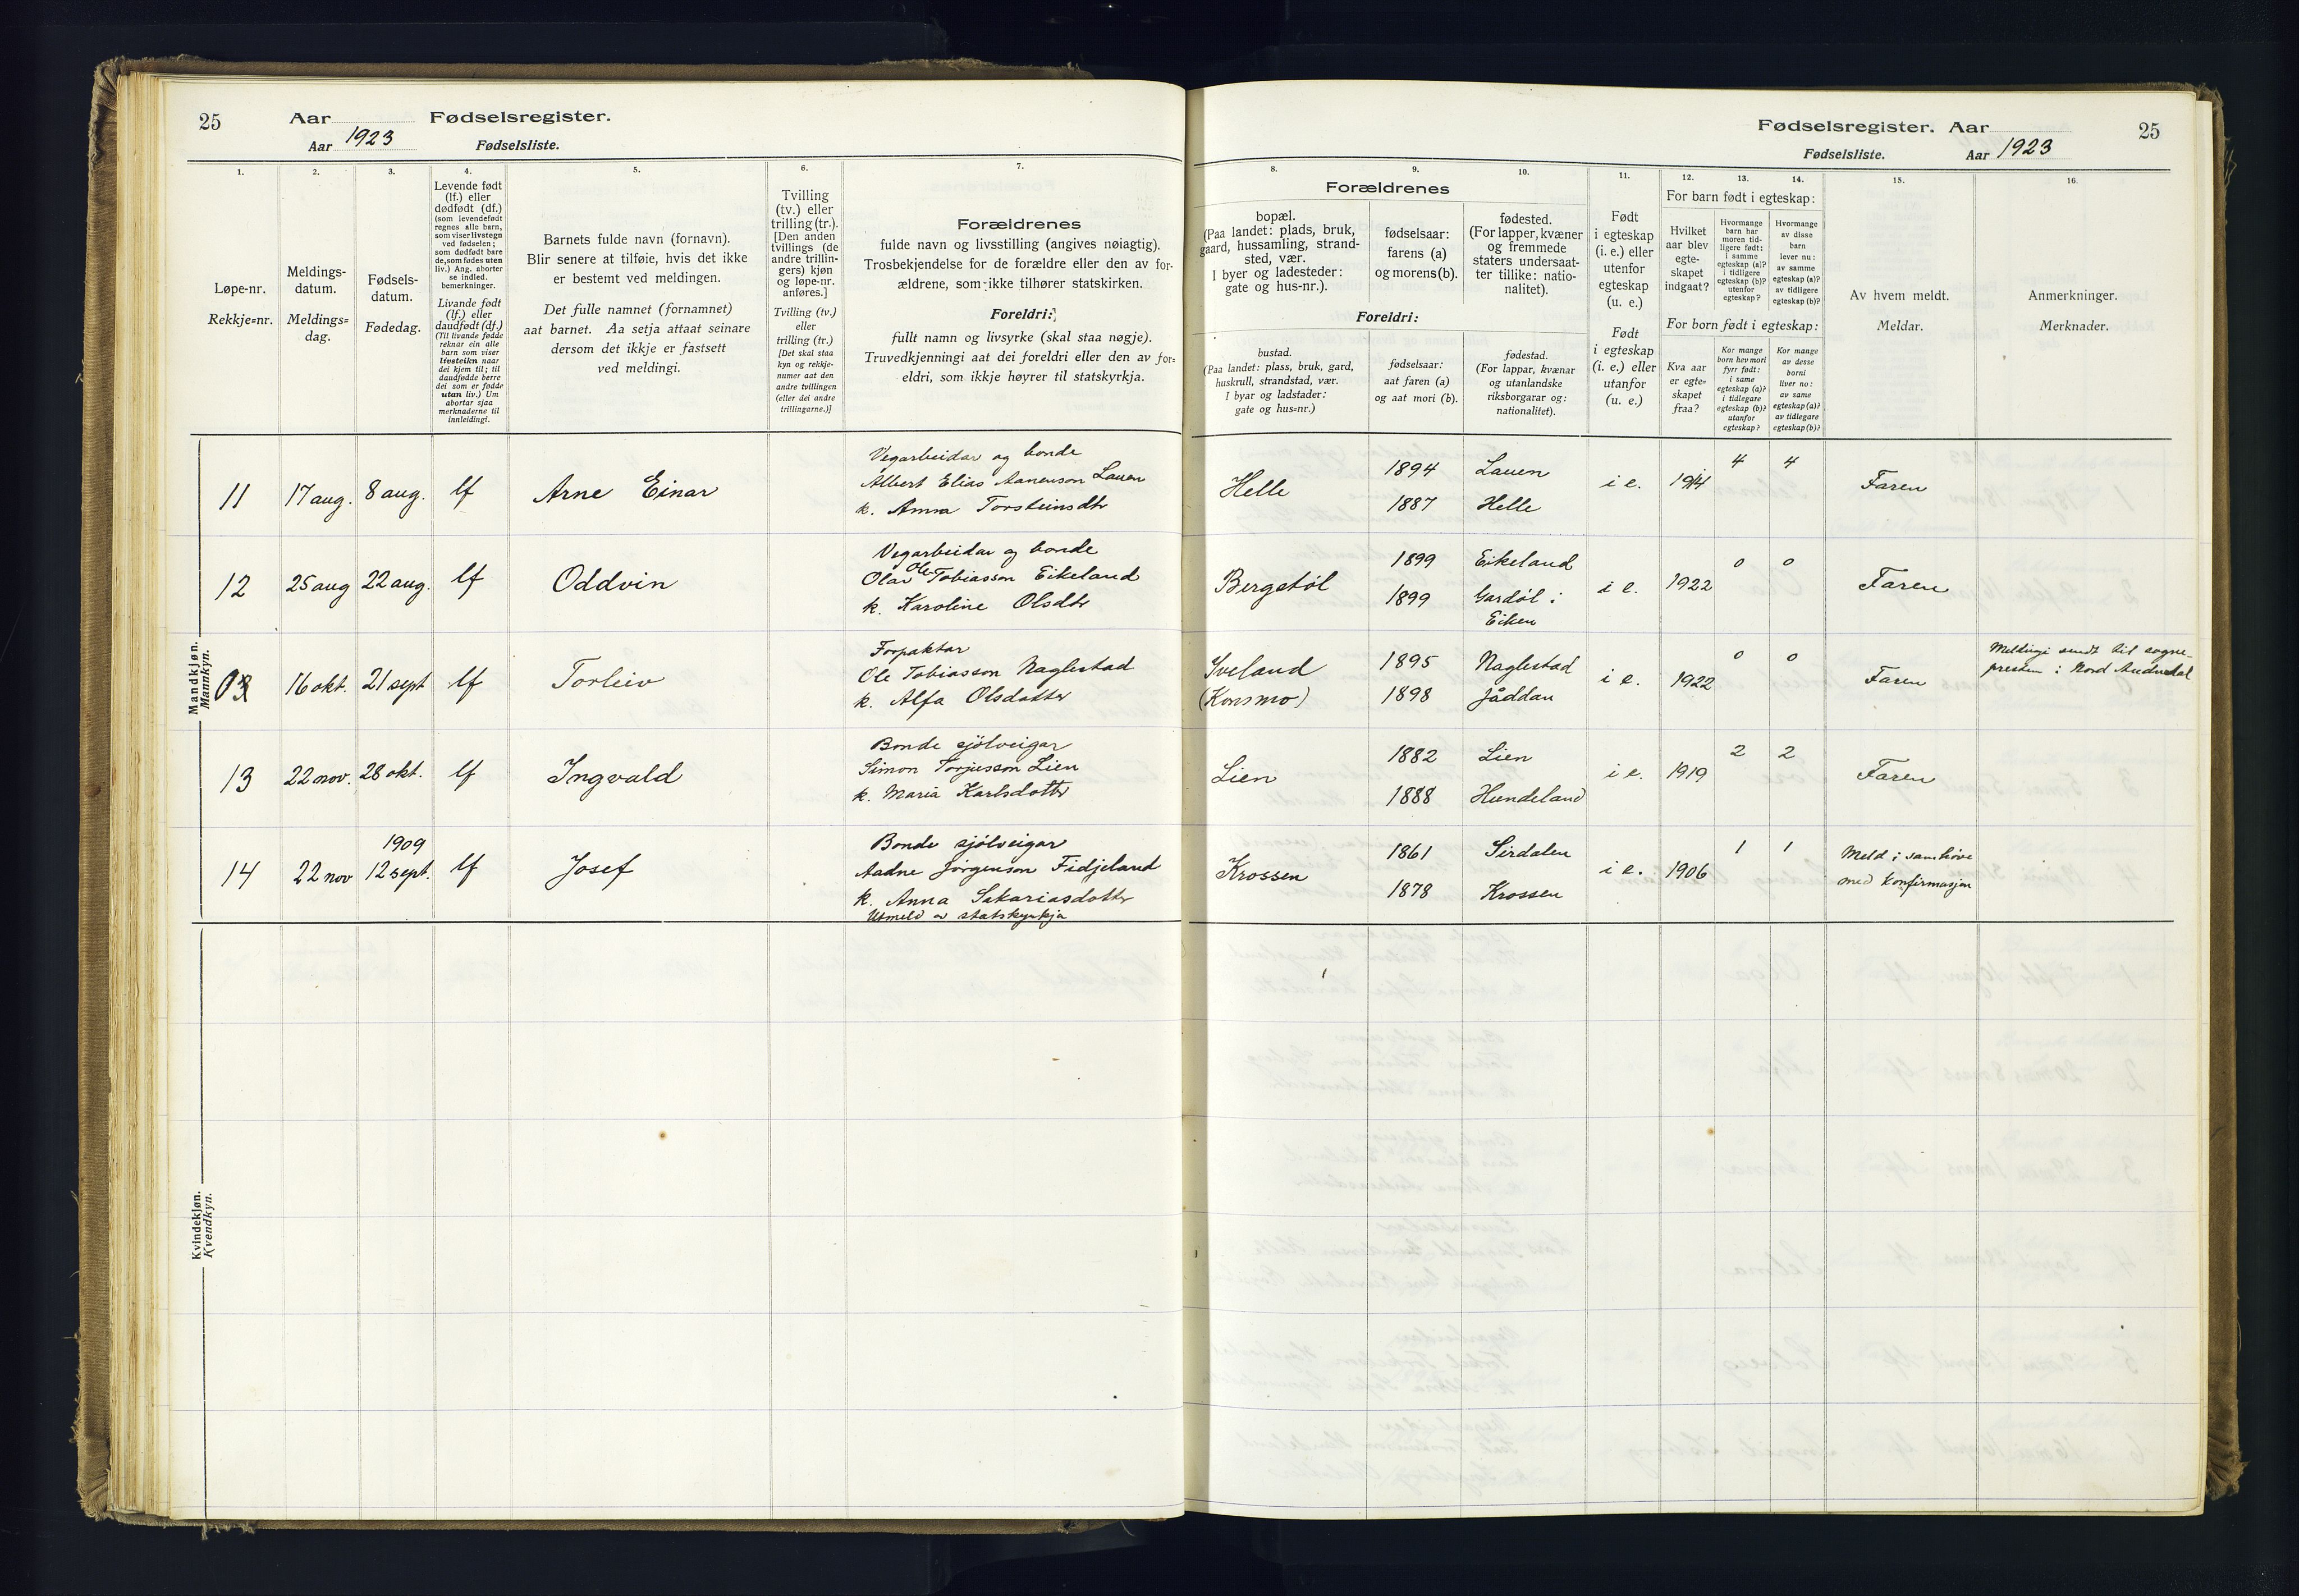 25 Aar Fødselsregister.
Aar 1923 Fødselsliste.
Fødselsregister. Aar 25
Fødselsliste. Aar 1923
1.
Løpe-nr.
Rekkje=nr.
2.
Meldings-
datum.
Meldings=
dag.
3.
Fødsels-
datum.
Fødedag.
4.
Levende født
(lf.) eller
dødfødt (df.)
(som levendefødt
regnes alle barn,
som viser livstegn
ved fødselen;
som dødfødt bare
de, som fødes uten
liv.) Ang. aborter
se indled.
bemerkninger.
Livande født
(lf.) eller
daudfødt (df.)
(Til livande fødde
reknar ein alle
barn som viser
livsteikn naar
dei kjem til; til
daudfødde berre
dei som er fødde
utan liv.) Um
abortar sjaa
merknaderne til
innleidingi.
5.
Barnets fulde navn (fornavn).
Blir senere at tilføie, hvis det ikke
er bestemt ved meldingen.
Det fulle namnet (fornamnet)
aat barnet. Aa setja attaat seinare
dersom det ikkje er fastsett
ved meldingi.
6.
Tvilling
(tv.) eller
trilling (tr.).
[Den anden
tvillings (de
andre trillin-
gers) kjøn
og løpe-nr.
anføres.]
Tvilling (tv.)
eller
trilling (tr.)
[Det skal staa
kyn og rekkje-
numer aat den
andre tvillingen
(eller dei andre
trillingarne.)]
7.
Forældrenes
fulde navn og livsstilling (angives nøiagtig).
Trosbekjendelse for de forældre eller den av for-
ældrene, som ikke tilhører statskirken.
Foreldri:
fullt namn og livsyrke (skal staa nøgje).
Truvedkjenningi aat dei foreldri eller den av for=
eldri, som ikkje høyrer til statskyrkja.
8.
9.
10.
Forældrenes
bopæl.
(Paa landet: plads, bruk,
gaard, hussamling, strand-
sted, vær.
I byer og ladesteder:
gate og hus-nr.).
fødselsaar:
farens (a)
og morens (b).
fødested.
(For lapper, kvæner
og fremmede
staters undersaat-
ter tillike: natio-
nalitet).
Foreldri:
bustad.
(Paa landet: plass, bruk, gard,
huskrull, strandstad, vær.
I byar og ladstader:
gate og hus=nr.)
fødselsaar:
aat faren (a)
og aat mori (b).
fødestad.
(For lappar, kvænar
og utanlandske
riksborgarar og:
nationalitet).
11.
Født
i egteskap
(i. e.) eller
utenfor
egteskap
(u. e.)
Født
i egteskap
(i. e.) eller
utanfor
(u. e.)
12.
13.
14.
For barn født i egteskap:
Hvilket
aar blev
egte-
skapet
indgaat?
Hvormange
barn har
moren tid-
ligere født:
i samme
egteskap (a)?
i tidligere
egteskap (b)?
utenfor
egteskap?
Hvormange
av disse
barn
lever nu:
av samme
egteskap (a)?
av tidligere
egteskap (b)?
For born født i egteskap:
Kva aar
er egte=
skapet
fraa?
Kor mange
born hev mori
fyrr født:
i same
egteskap (a)?
i tidlegare
egteskap (b)?
utanfor
egteskap?
Kor mange
av desse
borni
liver no:
av same
egteskap (a)?
av tidlegare
egteskap (b)?
15.
Av hvem meldt.
Meldar.
16.
Anmerkninger.
Merknader.
Mandkjøn.
Mannkyn.
Vegarbeidar og bonde
11 17 aug. 8 aug. lf Arne Einar Albert Elias Aanenson Lauen
k. Anna Torsteinsdtr
Helle 1894 Lauen i e. 1914 4 4 Faren
1887 Helle
Vegarbeidar og bonde
12 25 aug 22 aug. lf Oddvin Olav Ole Tobiasson Eikeland
k. Karoline Olsdtr
Bergstøl 1899 Eikeland i e. 1922 0 0 Faren
1899 Gardøl i
Eiken
Forpaktar
03 16 okt. 21 sept lf Torleiv Ole Tobiasson Naglestad
k. Alfa Olsdotter
Iveland 1895 Naglestad i e. 1922 0 0 Faren Meldingi sendt til sogne-
(Konsmo) 1898 Jåddan presten i Nord Audnedal
Bonde sjölveigar
13 22 nov. 28 okt. lf Ingvald Simon Torjusson Lien
k. Maria Karlsdottr
Lien 1882 Lien i e. 1919 2 2 Faren
1888 Hundeland
1909 Bonde sjölveigar
14 22 nov 12 sept. lf Josef Aadne Jörgenson Fidjeland
k. Anna Sakariasdottr
Utmeld or statskyrkja
Krossen 1861 Sirdalen i e. 1906 1 1 Meld i samhöve
1878 Krossen med konfirmasjon
Kvindekjøn.
Kvendkyn.